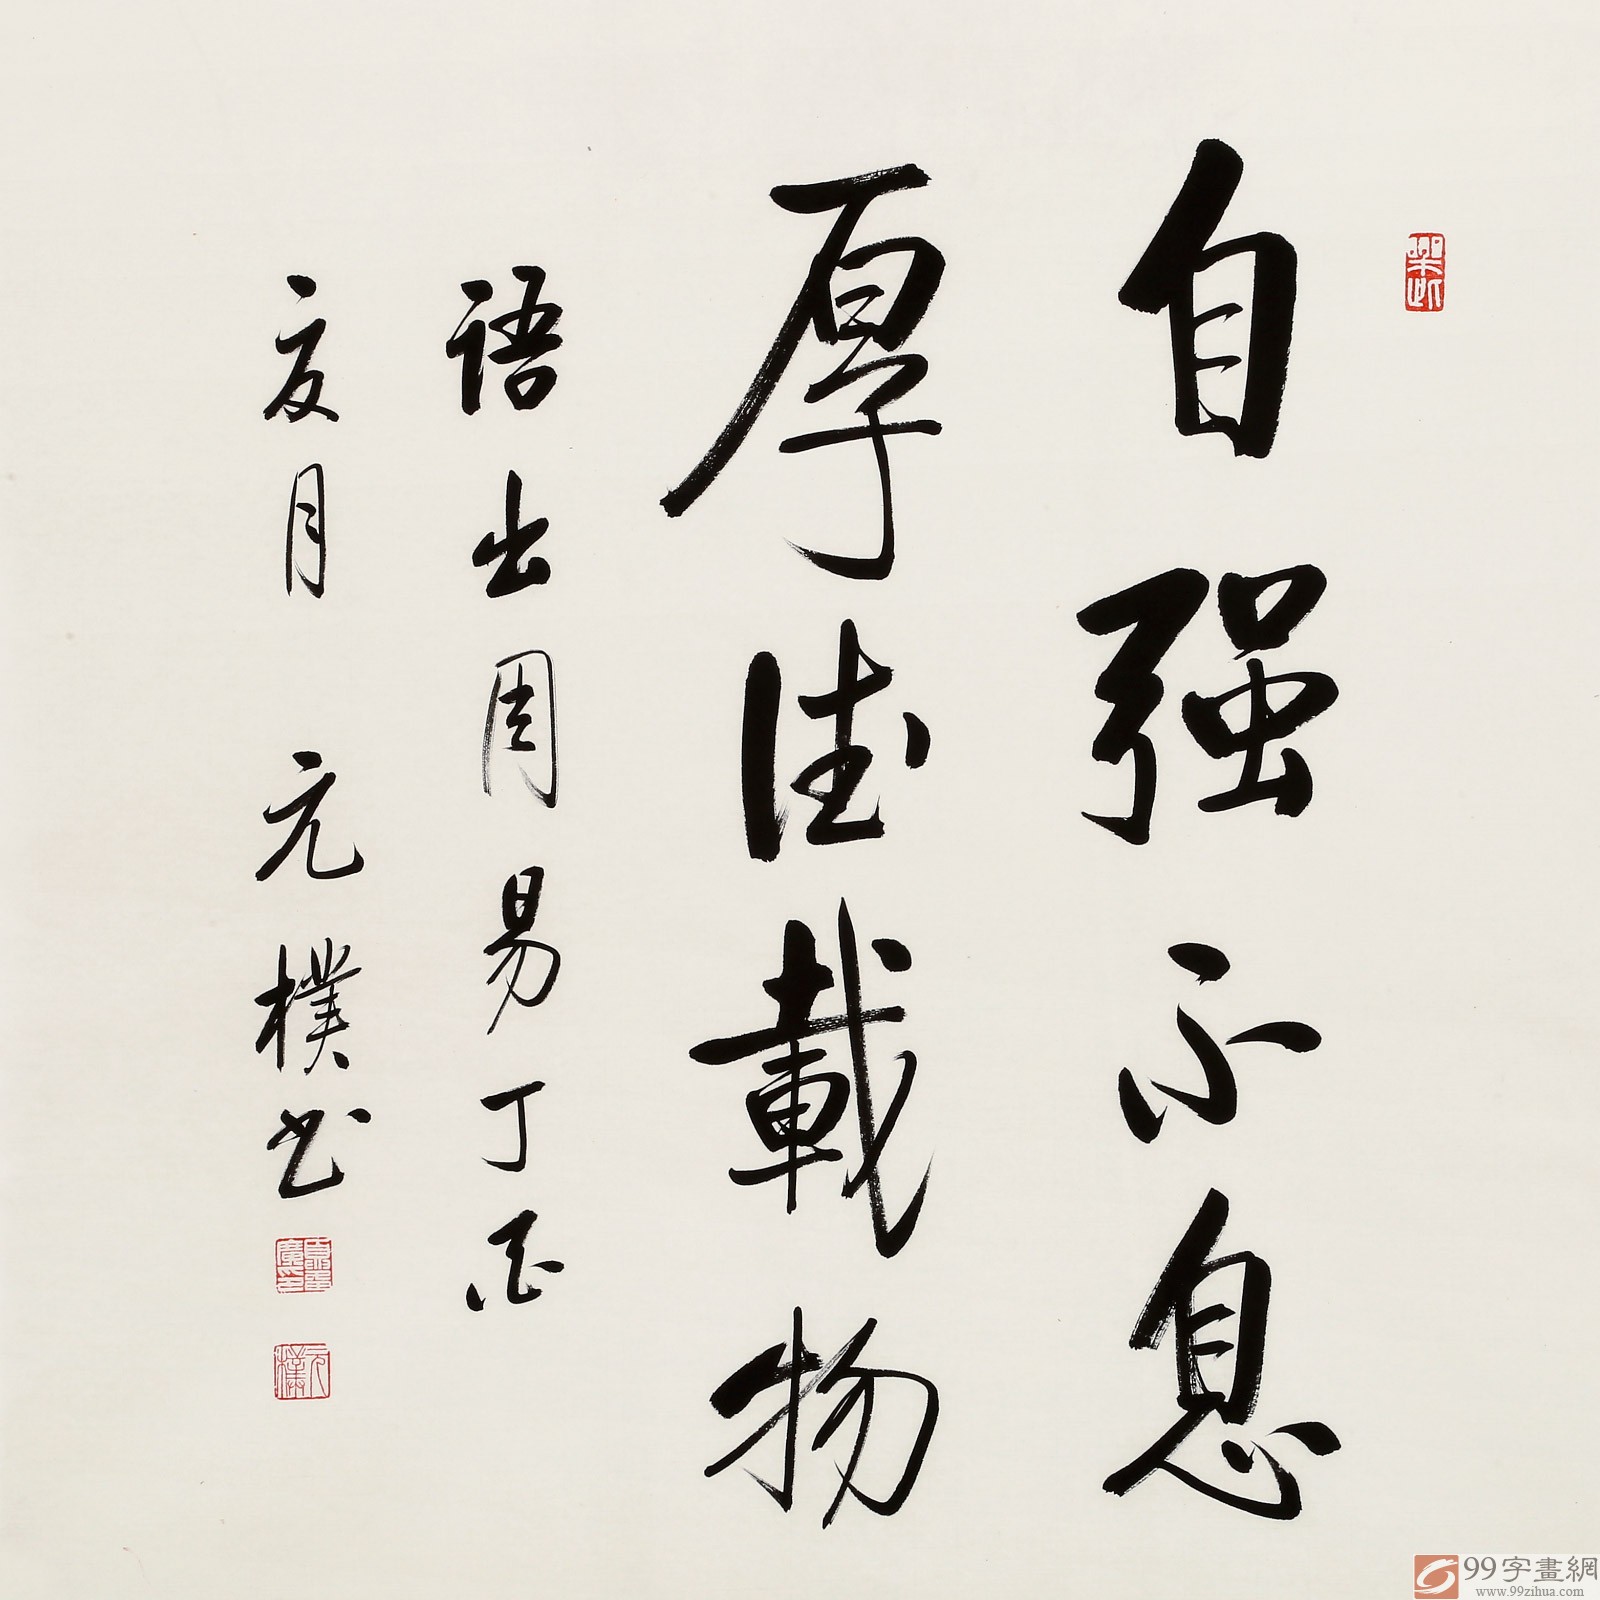 自强不息
厚德載物
語出周易丁酉
夏月 元樸书
元樸
99字畫網
www.99zihua.com